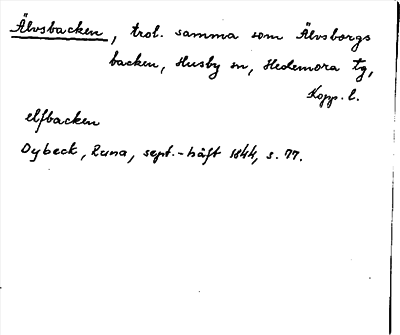 Älvsbacken, trol. samma som Älvsborgs
backen, Husby sn, Hedemora tg,
Kopp. l.
elfbacken
Dybeck, Runa, sept.-häft 1844, s. 77.